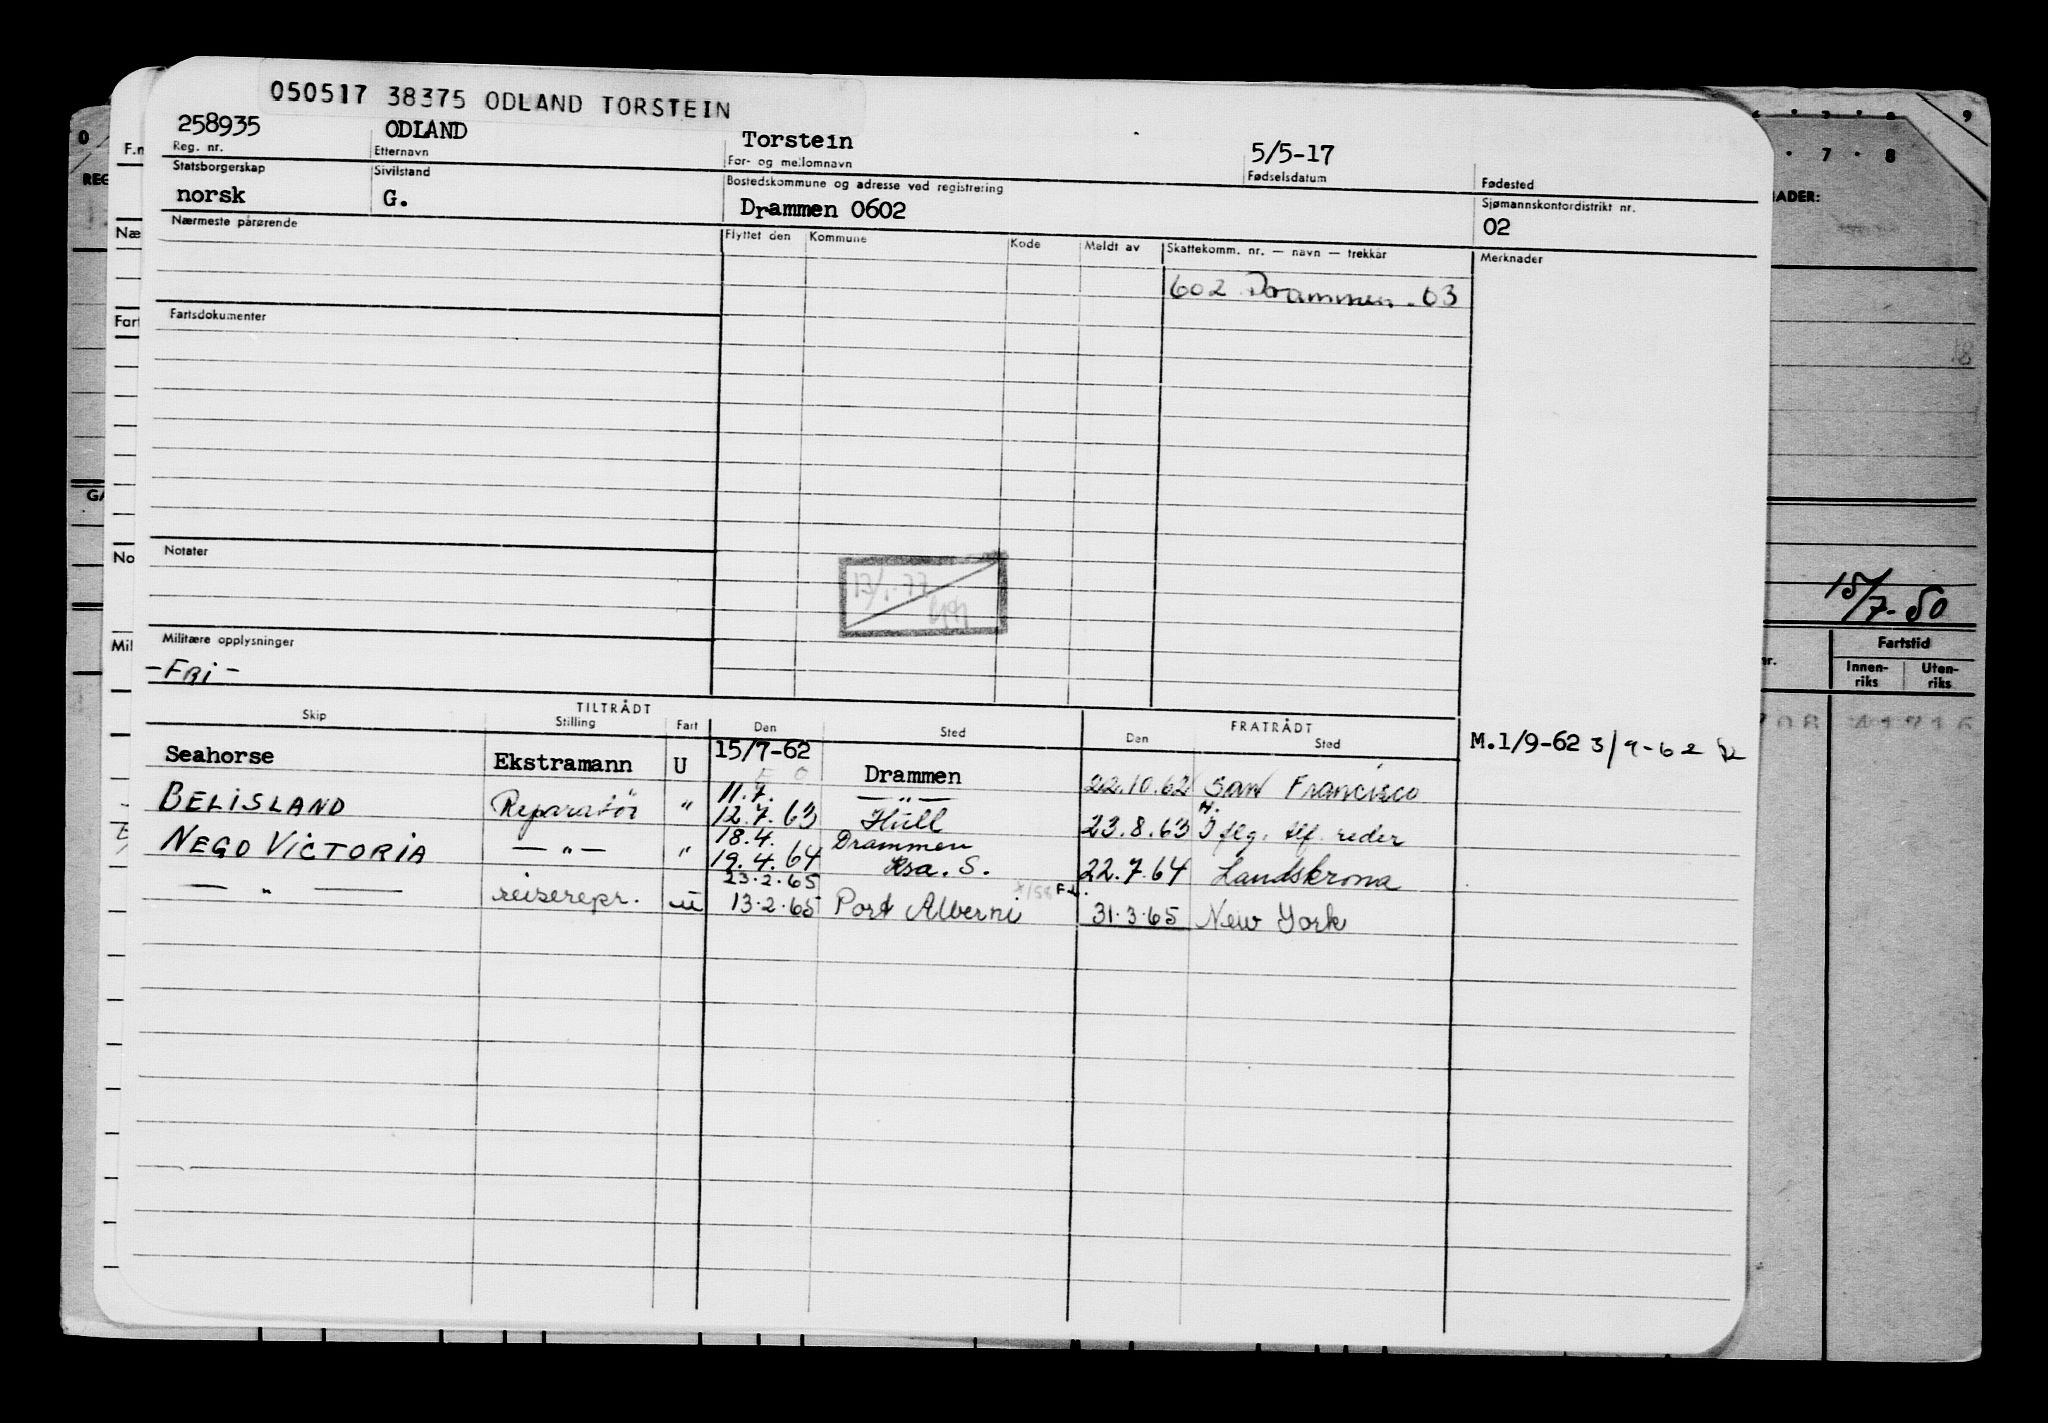 050517 38375 ODLAND TORSTEIN
258935 ODLAND Torstein 5/5-17
Reg. nr. Etternavn For- og mellomnavn Fødselsdatum Fødested
Statsborgerskap Sivilstand Bostedskommune og adresse ved registrering Sjømannskontordistrikt nr.
norsk G. Drammen 0602 02
Nærmeste pårørende Flyttet den Kommune Kode Meldt av Skattekomm. nr. — navn — trekkår Merknader
602 Drammen. 63
Fartsdokumenter
Notater
Militære opplysninger
-FRI-
15/7-50
Fartstid
Innen-riks Uten-riks
TILTRÅDT FRATRÅDT
Skip Stilling Fart Den Sted Den Sted
Seahorse Ekstramann U 15/7-62 Drammen 22.10.62 San Francisco M.1/9-62 3/9-62
BELISLAND Reparatør " 11.7. — " —
12.7.63 Hull 23.8.63 flg. tlf. reder
NEGO VICTORIA — " — " 18.4. Drammen
19.4.64 S. 22.7.64 Landskrona
— " — reiserepr. u 23.2.65
13.2.65 Port Alberni 31.3.65 New York